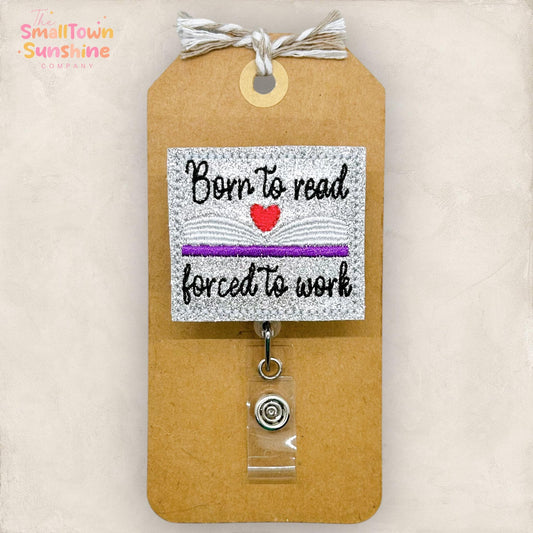 The
SmallTown
Sunshine
COMPANY
Born to read
forced to work